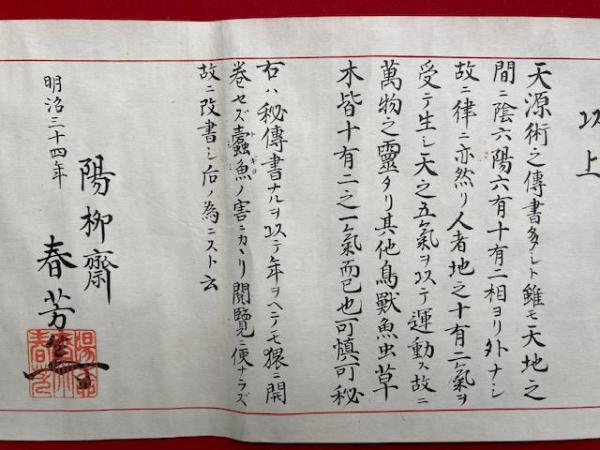 以上
天源術之傳書多シト雖モ天地之
間ニ陰六陽六有十有二相ヨリ外ナシ
故ニ律ニ亦然リ人者地之十有二氣ヲ
受テ生シ天之五氣ヲ以テ運動ス故ニ
萬物之靈タリ其他鳥獸魚虫草
木皆十有二之一氣而已也可慎可秘
右ハ秘傳書ナルヲ以テ年ヲヘテモ猥ニ開
巻セズ蠹魚ノ害ニカヽリ閲覽ニ便ナラズ
故ニ改書シ后ノ為ニスト云
明治三十四年
陽柳齋
春芳